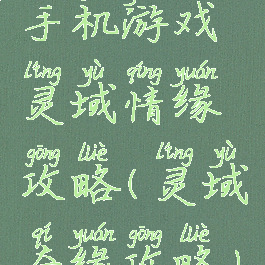 手机游戏
líng yù qíng yuán
灵域情缘
gōng lüè líng yù
攻略(灵域
qí yuán gōng lüè
奇缘攻略)